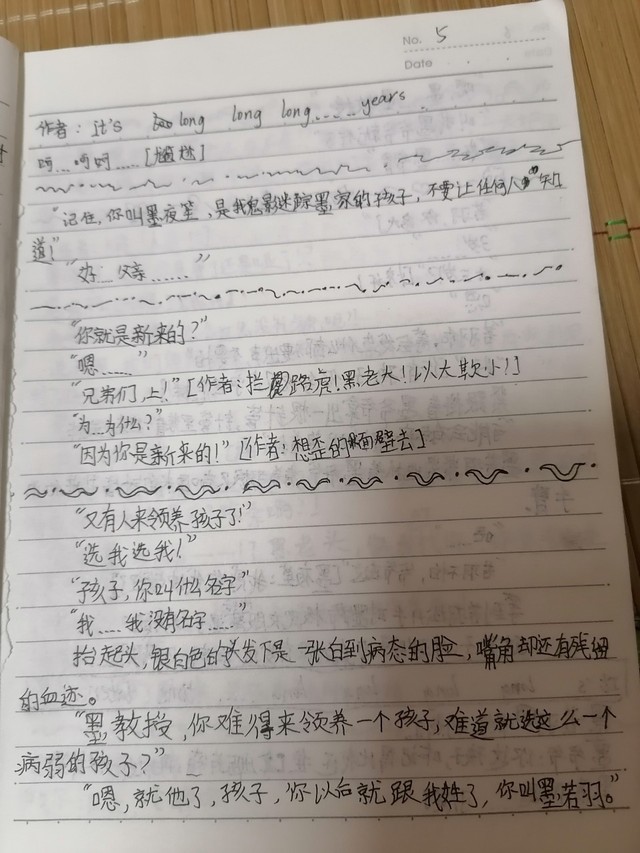 No. 5
Date
作者：it's long long long……years
呵…呵呵……[尴尬]
“记住，你叫墨夜笙，是我鬼影迷踪墨家的孩子，不要让任何人知
道！”
“好…父亲……”
“你就是新来的？”
“嗯……”
“兄弟们，上！”[作者：拦路虎！黑老大！以大欺小！]
“为…为什么？”
“因为你是新来的！”[作者：想歪的面壁去]
“又有人来领养孩子了！”
“选我选我！”
“孩子，你叫什么名字”
“我……我没有名字……”
抬起头，银白色的头发下是一张白到病态的脸，嘴角却还有残留
的血迹。
“墨教授，你难得来领养一个孩子，难道就选这么一个
病弱的孩子？”
“嗯，就他了，孩子，你以后就跟我姓了，你叫墨若羽。”